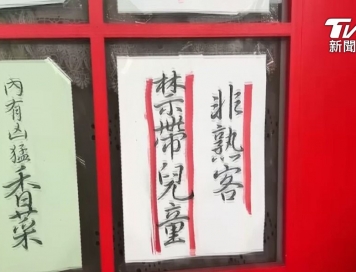 TV
新聞
非熟客
禁帶兒童
內有凶猛
香菜